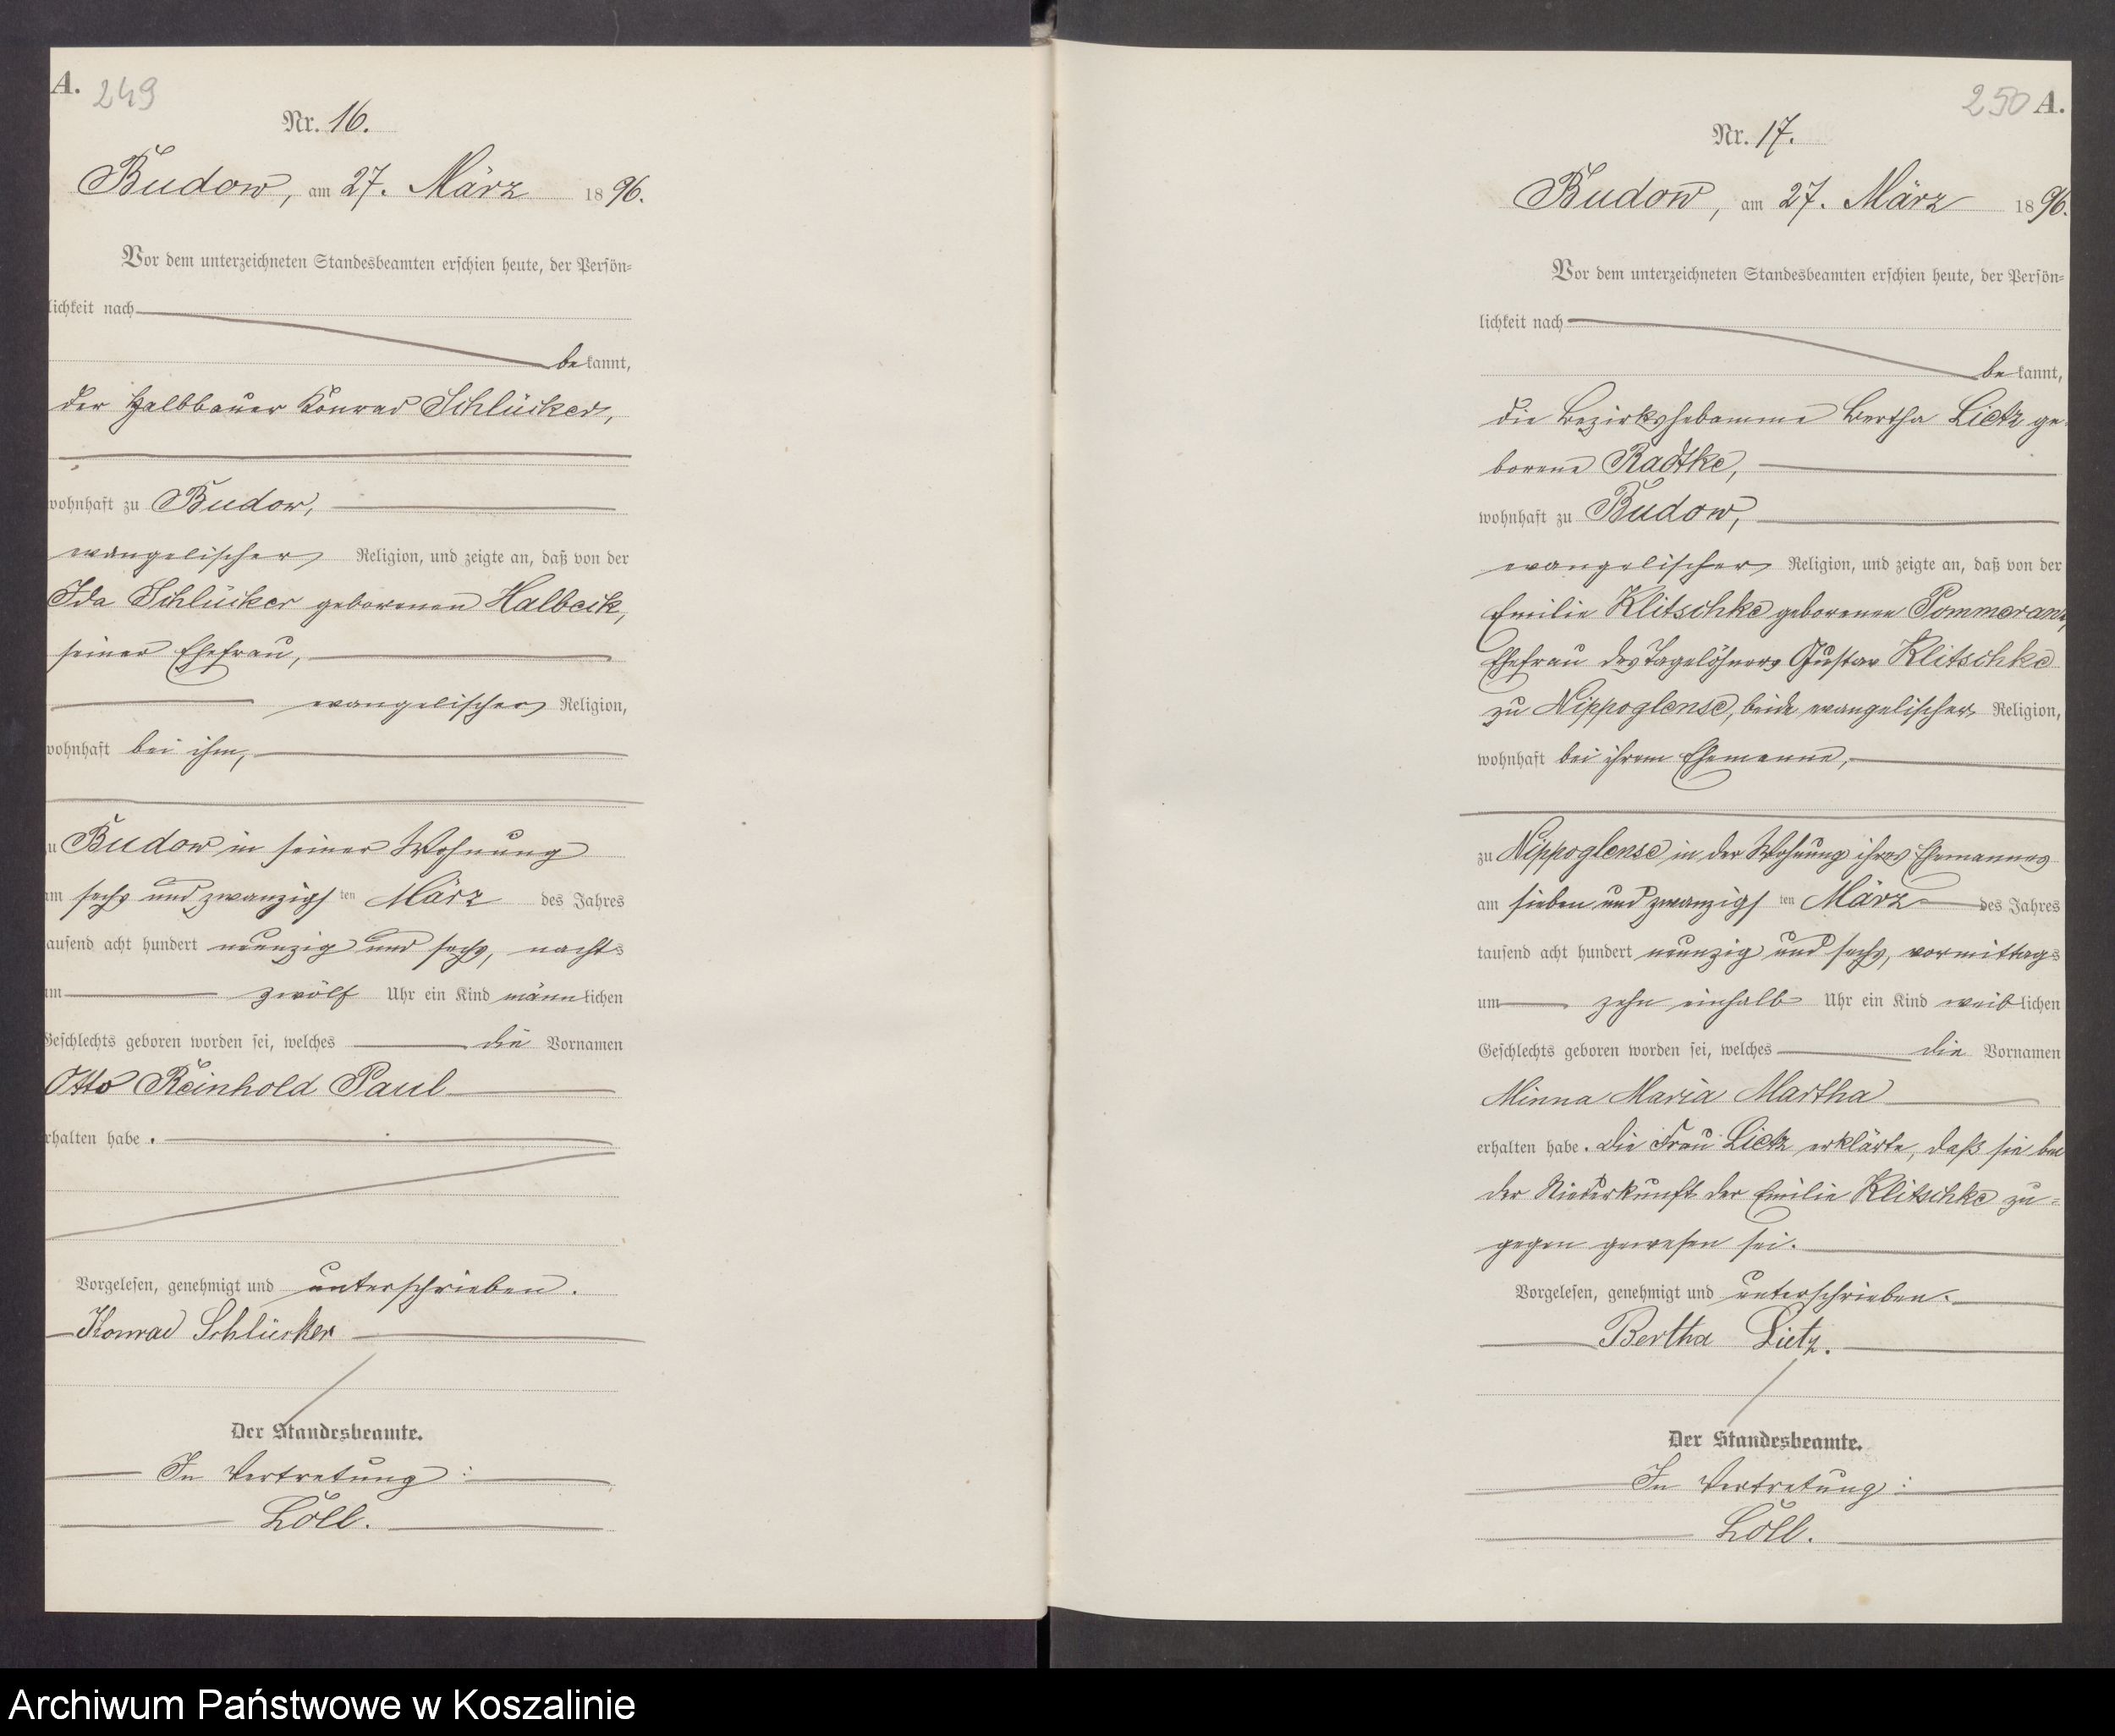 A. 249
Nr. 16.
Budow, am 27. März 1896.
Vor dem unterzeichneten Standesbeamten erschien heute, der Persön=
lichkeit nach
bekannt,
der Halbbauer Konrad Schlücker,
wohnhaft zu Budow,
evangelischer Religion, und zeigte an, daß von der
Ida Schlücker geborenen Halbeck,
seiner Ehefrau,
evangelischer Religion,
wohnhaft bei ihm,
zu Budow in seiner Wohnung
am sechs und zwanzigsten März des Jahres
tausend acht hundert neunzig und sechs, nachts
um zwölf Uhr ein Kind männlichen
Geschlechts geboren worden sei, welches die Vornamen
Otto Reinhold Paul
erhalten habe.
Vorgelesen, genehmigt und unterschrieben.
Konrad Schlücker
Der Standesbeamte.
In Vertretung:
Löll.
250 A.
Nr. 17.
Budow, am 27. März 1896.
Vor dem unterzeichneten Standesbeamten erschien heute, der Persön=
lichkeit nach
bekannt,
die Bezirkshebamme Bertha Lietz ge-
borene Radtke,
wohnhaft zu Budow,
evangelischer Religion, und zeigte an, daß von der
Emilie Klitschke geborenen Pommeranz,
Ehefrau des Tagelöhners Gustav Klitschke
zu Nippoglense, beide evangelischer Religion,
wohnhaft bei ihrem Ehemanne,
zu Nippoglense in der Wohnung ihres Ehemannes
am sieben und zwanzigsten März des Jahres
tausend acht hundert neunzig und sechs, vormittags
um zehn einhalb Uhr ein Kind weiblichen
Geschlechts geboren worden sei, welches die Vornamen
Minna Maria Martha
erhalten habe. Die Frau Lietz erklärte, daß sie bei
der Niederkunft der Emilie Klitschke zu=
gegen gewesen sei.
Vorgelesen, genehmigt und unterschrieben.
Bertha Lietz.
Der Standesbeamte.
In Vertretung:
Löll.
Archiwum Państwowe w Koszalinie